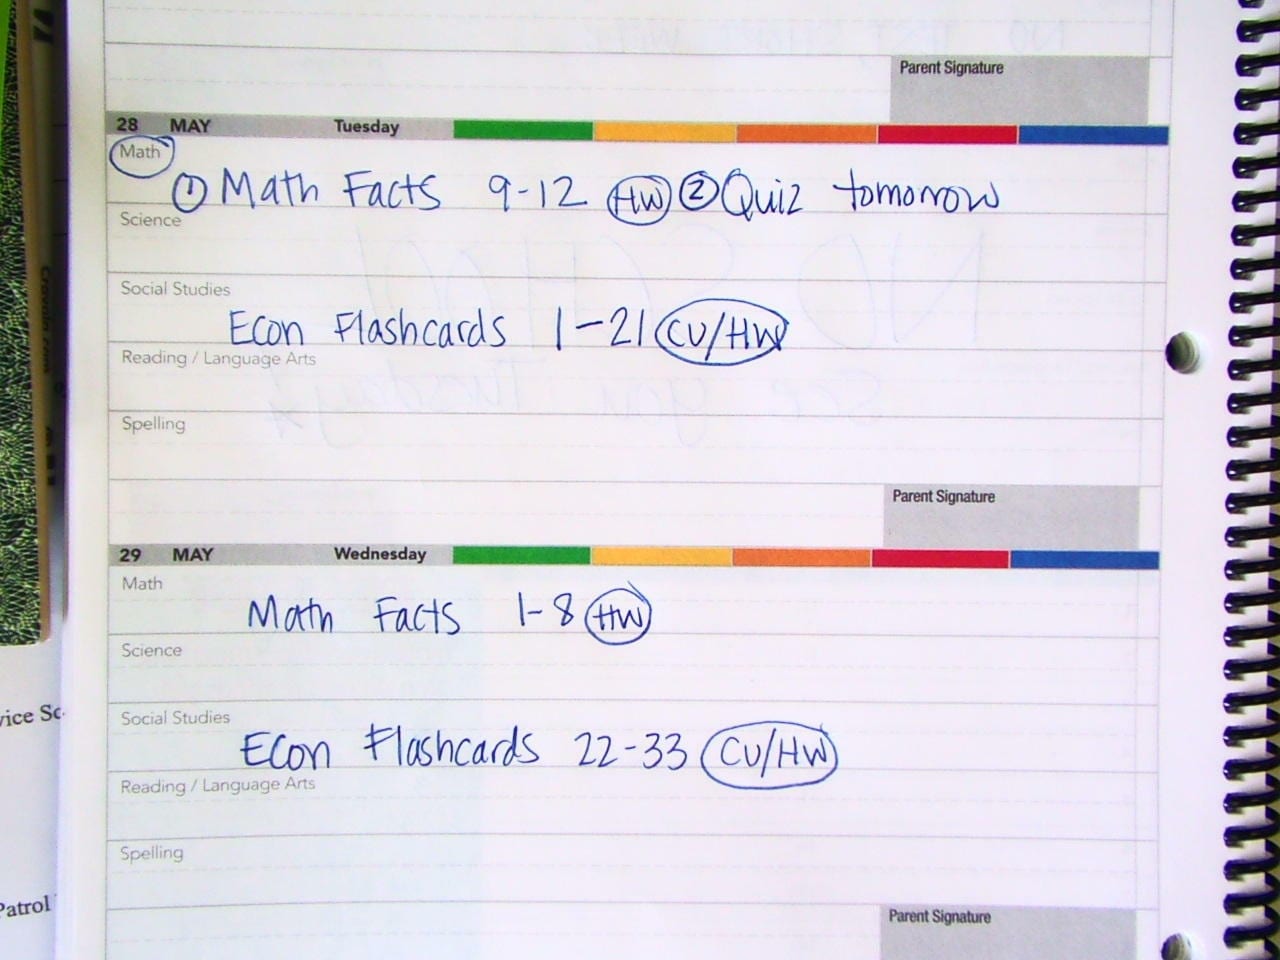 Parent Signature
28 MAY Tuesday
Math
① Math Facts 9-12 HW ② Quiz tomorrow
Science
Social Studies
Econ Flashcards 1-21 CU/HW
Reading / Language Arts
Spelling
Parent Signature
29 MAY Wednesday
Math
Math Facts 1-8 HW
Science
Social Studies
Econ Flashcards 22-33 CU/HW
Reading / Language Arts
Spelling
Parent Signature
Patrol